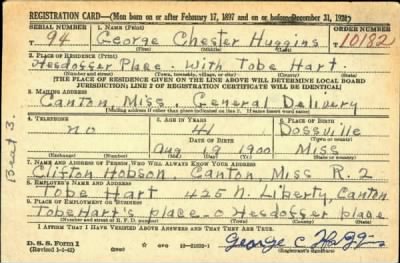 REGISTRATION CARD—(Men born on or after February 17, 1897 and on or before December 31, 1921)
SERIAL NUMBER 1. NAME (Print) ORDER NUMBER
94 George Chester Huggins 10182
2. PLACE OF RESIDENCE (Print)
Hesdoffer Place. With Tobe Hart.
(Number and street) (Town, township, village, or city) (County) (State)
[THE PLACE OF RESIDENCE GIVEN ON THE LINE ABOVE WILL DETERMINE LOCAL BOARD
JURISDICTION; LINE 2 OF REGISTRATION CERTIFICATE WILL BE IDENTICAL]
3. MAILING ADDRESS
Canton, Miss. General Delivery
[Mailing address if other than place indicated on line 2. If same insert word same]
4. TELEPHONE 5. AGE IN YEARS 6. PLACE OF BIRTH
no 41 Dossville
DATE OF BIRTH
Aug 19 1900 Miss
(Exchange) (Number) (Mo.) (Day) (Yr.)
7. NAME AND ADDRESS OF PERSON WHO WILL ALWAYS KNOW YOUR ADDRESS
Clifton Hobson Canton, Miss R. 2
8. EMPLOYER'S NAME AND ADDRESS
Tobe Hart 425 N. Liberty, Canton
9. PLACE OF EMPLOYMENT OR BUSINESS
Tobe Hart's place - Hesdoffer place
(Number and street or R. F. D. number) (Town) (County) (State)
I AFFIRM THAT I HAVE VERIFIED ABOVE ANSWERS AND THAT THEY ARE TRUE.
D. S. S. Form 1
(Revised 1-1-42) George C Huggins
(Registrant's signature)
Beat 3.